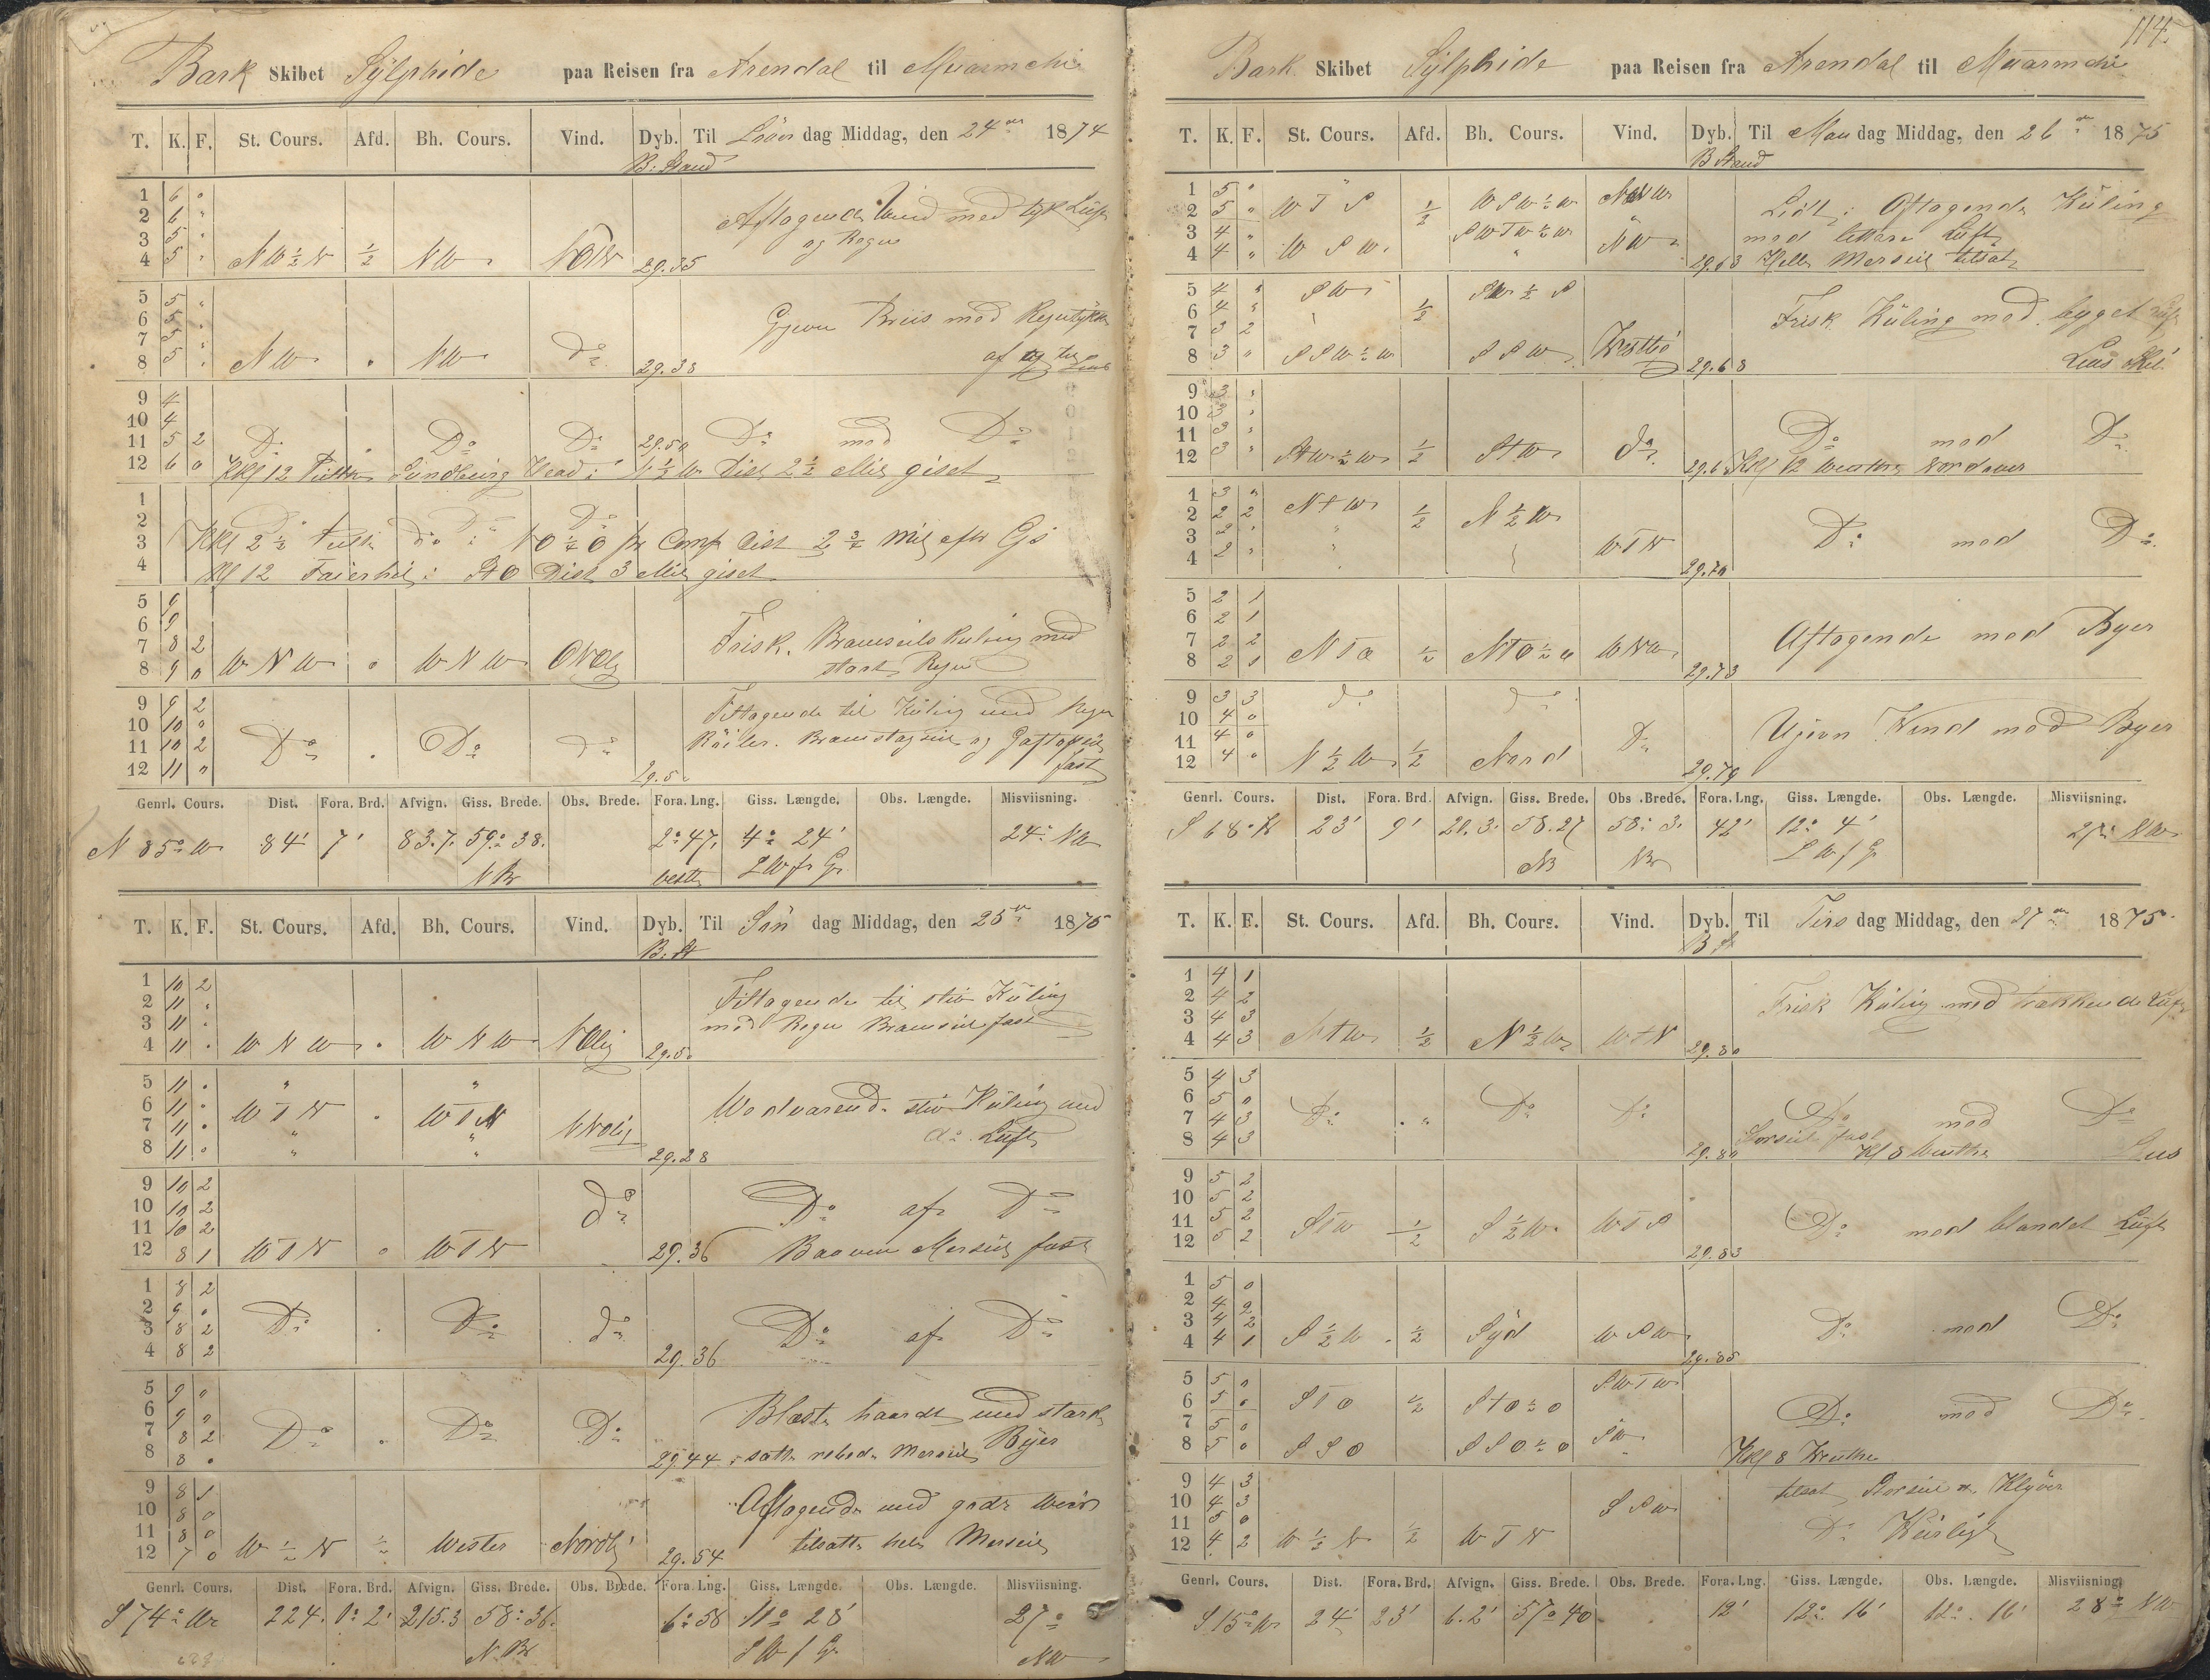 Bark Skibet Sylphide paa Reisen fra Arendal til
T. K. F. St. Cours. Afd. Bh. Cours. Vind. Dyb. Til Löver dag Middag, den 24de 1874
B: Stand
1 6 "
2 6 " Aftagende Vind med tyk Luft
3 5 " og Regn
4 5 " NW ½ N ½ NW NOtN 29.35
5 5 "
6 5 " Gjevn Briis med Regntykke
7 5 "
8 5 " NW " NW Do 29.38 af og til
9 4
10 4
11 5 2 Do " Do Do 29.50 Do med Do
12 6 0 Kkl 12 Peilte Head i Dist 2½ Mil giset
1
2 Do Do Do
3 Kkl 2½ Do i pr Comp Dist 2¾ Mil efter Gis
4 Kl 12 i StO Dist 3 Mil giset
5 9
6 9
7 8 2 Frisk Bramseils Kuling med
8 9 0 WNW " WNW stærk Regn
9 9 2 Tiltagende til Küling med Regn
10 10 0 Röiler. Bramstagseil og Gaftopseil
11 10 2 Do " Do Do fast
12 11 " 29.5
Genrl. Cours. Dist. Fora. Brd. Afvign. Giss. Brede. Obs. Brede. Fora. Lng. Giss. Længde. Obs. Længde. Misviisning.
N 85° W 84' 7' 83.7. 59° 38. 2° 47. 4° 24' 24° NW
N Br vestl LW fr Gr
T. K. F. St. Cours. Afd. Bh. Cours. Vind. Dyb. Til Sön dag Middag, den 25de 1875
B: St
1 10 2 Tiltagende til stiv Küling
2 11 " med Regn Bramseil fast
3 11 "
4 11 " WNW " WNW NOlig 29.5
5 11 " " "
6 11 " WTN " WTN Wedvarende stiv Küling med
7 11 " " " NNOlig do Luft
8 11 " " " 29.28
9 10 2
10 10 2 do Do af Do
11 10 2
12 8 1 WTN " WTN 29.36 Mersseil fast
1 8 2
2 9 "
3 8 2 Do " Do do Do af Do
4 8 2 29.36
5 9 "
6 9 " Blæste haardt med stærke
7 8 2 Do " Do Do Byer
8 8 " 29.44 satte rebede Mersseil
9 8 1 Aftagende med godt Weir
10 8 0
11 8 0
12 7 0 W ½ N ½ Wester Nordlig 29.54 tilsatte hele Mersseil
Genrl. Cours. Dist. Fora. Brd. Afvign. Giss. Brede. Obs. Brede. Fora. Lng. Giss. Længde. Obs. Længde. Misviisning.
S 74° W 224. 1° 2' 215.3 58° 36. 6° 58 11° 28' 27°
N. Br LW f G. NW
114.
Bark Skibet Sylphide paa Reisen fra Arendal til
T. K. F. St. Cours. Afd. Bh. Cours. Vind. Dyb. Til Man dag Middag, den 26de 1875
B Stand
1 5 "
2 5 " WTS ½ WSW ½ W NWtW Lidt Aftagende Küling
3 4 " SWTW ½ W med lettere Luft
4 4 " WSW " NW 29.63 Hele Merseil tilsat
5 4 " SW SW ½ S
6 4 " " ½ Frisk Küling med byget Luft
7 3 2
8 3 " SSW ½ W SSW 29.68
9 3 "
10 3 "
11 3 " Do med Do
12 3 " StW ½ W ½ StW do Kkl 12 Nordover
1 3 "
2 2 2 NtW ½ N ½ W
3 2 " " Do med Do
4 2 " " WTN 29.70
5 2 1
6 2 1 Aftagende med Byer
7 2 2
8 2 1 NTO ½ NTO ½ O WNW 29.73
9 3 3 Do Do
10 4 0 Ujevn Wind med Byer
11 4 0 Do
12 4 " N ½ W ½ Nord 29.79
Genrl. Cours. Dist. Fora. Brd. Afvign. Giss. Brede. Obs. Brede. Fora. Lng. Giss. Længde. Obs. Længde. Misviisning.
S 68° W 23' 9' 20.3. 58.27 58° 3. 42' 12° 4' 27° NW
NB NBr LW f G
T. K. F. St. Cours. Afd. Bh. Cours. Vind. Dyb. Til Tirs dag Middag, den 27de 1875
B St
1 4 1
2 4 2 Frisk Küling med trækkende Luft
3 4 3
4 4 3 NtW ½ N ½ W WtN 29.80
5 4 3
6 5 0
7 4 3 Do " Do Do Do med Do
8 4 3 29.80 Storseil fast Kl 8
9 5 2
10 5 2
11 5 2 STW ½ S ½ W WTS Do med blandet Luft
12 5 2 29.83
1 5 0
2 4 2
3 4 2 Do med Do
4 4 1 S ½ W ½ Syd WSW 29.85
5 5 0 SWTW
6 5 0 STO ½ StO ½ O
7 5 0 Do med Do
8 5 0 SSO SSO ½ O SW Kkl 8
9 4 3 tilsat Storseil og Klyver
10 4 3 SSW
11 5 0 Do
12 4 2 W ½ N ½ WTN
Genrl. Cours. Dist. Fora. Brd. Afvign. Giss. Brede. Obs. Brede. Fora. Lng. Giss. Længde. Obs. Længde. Misviisning.
S 15° W 24' 23' 6.2' 57° 40 12' 12° 16' 12° 16' 28° NW